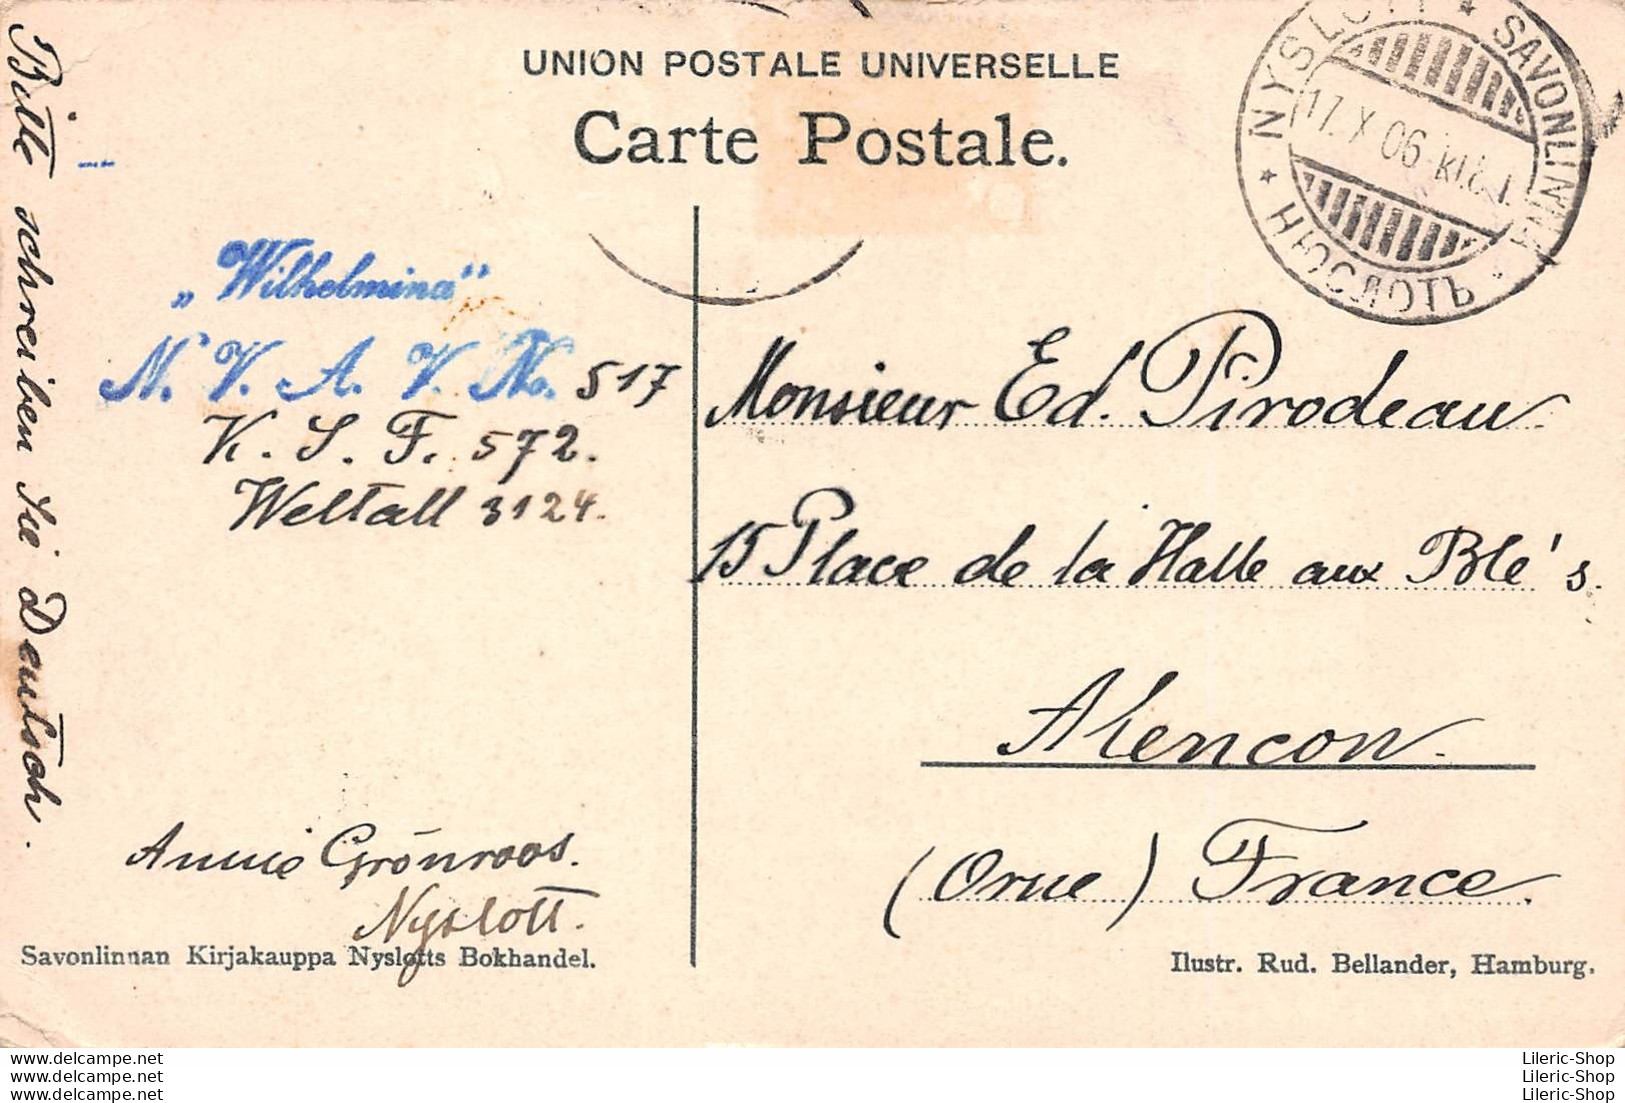 UNION POSTALE UNIVERSELLE
Carte Postale.
NYSLOTT * SAVONLINNA * НЮСЛОТЪ *
17. X 06
Bitte schreiben Sie Deutsch.
„Wilhelmina“
N. V. A. V. No. 517
K. S. F. 572.
Weltall 3124.
Annie Grönroos.
Nyslott.
Savonlinnan Kirjakauppa Nyslotts Bokhandel.
Monsieur Ed. Pirodeau
15 Place de la Halle aux Blé's.
Alencon.
(Orne) France.
Ilustr. Rud. Bellander, Hamburg.
delcampe.net
delcampe.net
delcampe.net
Lileric-Shop
Lileric-Shop
Lileric-Shop